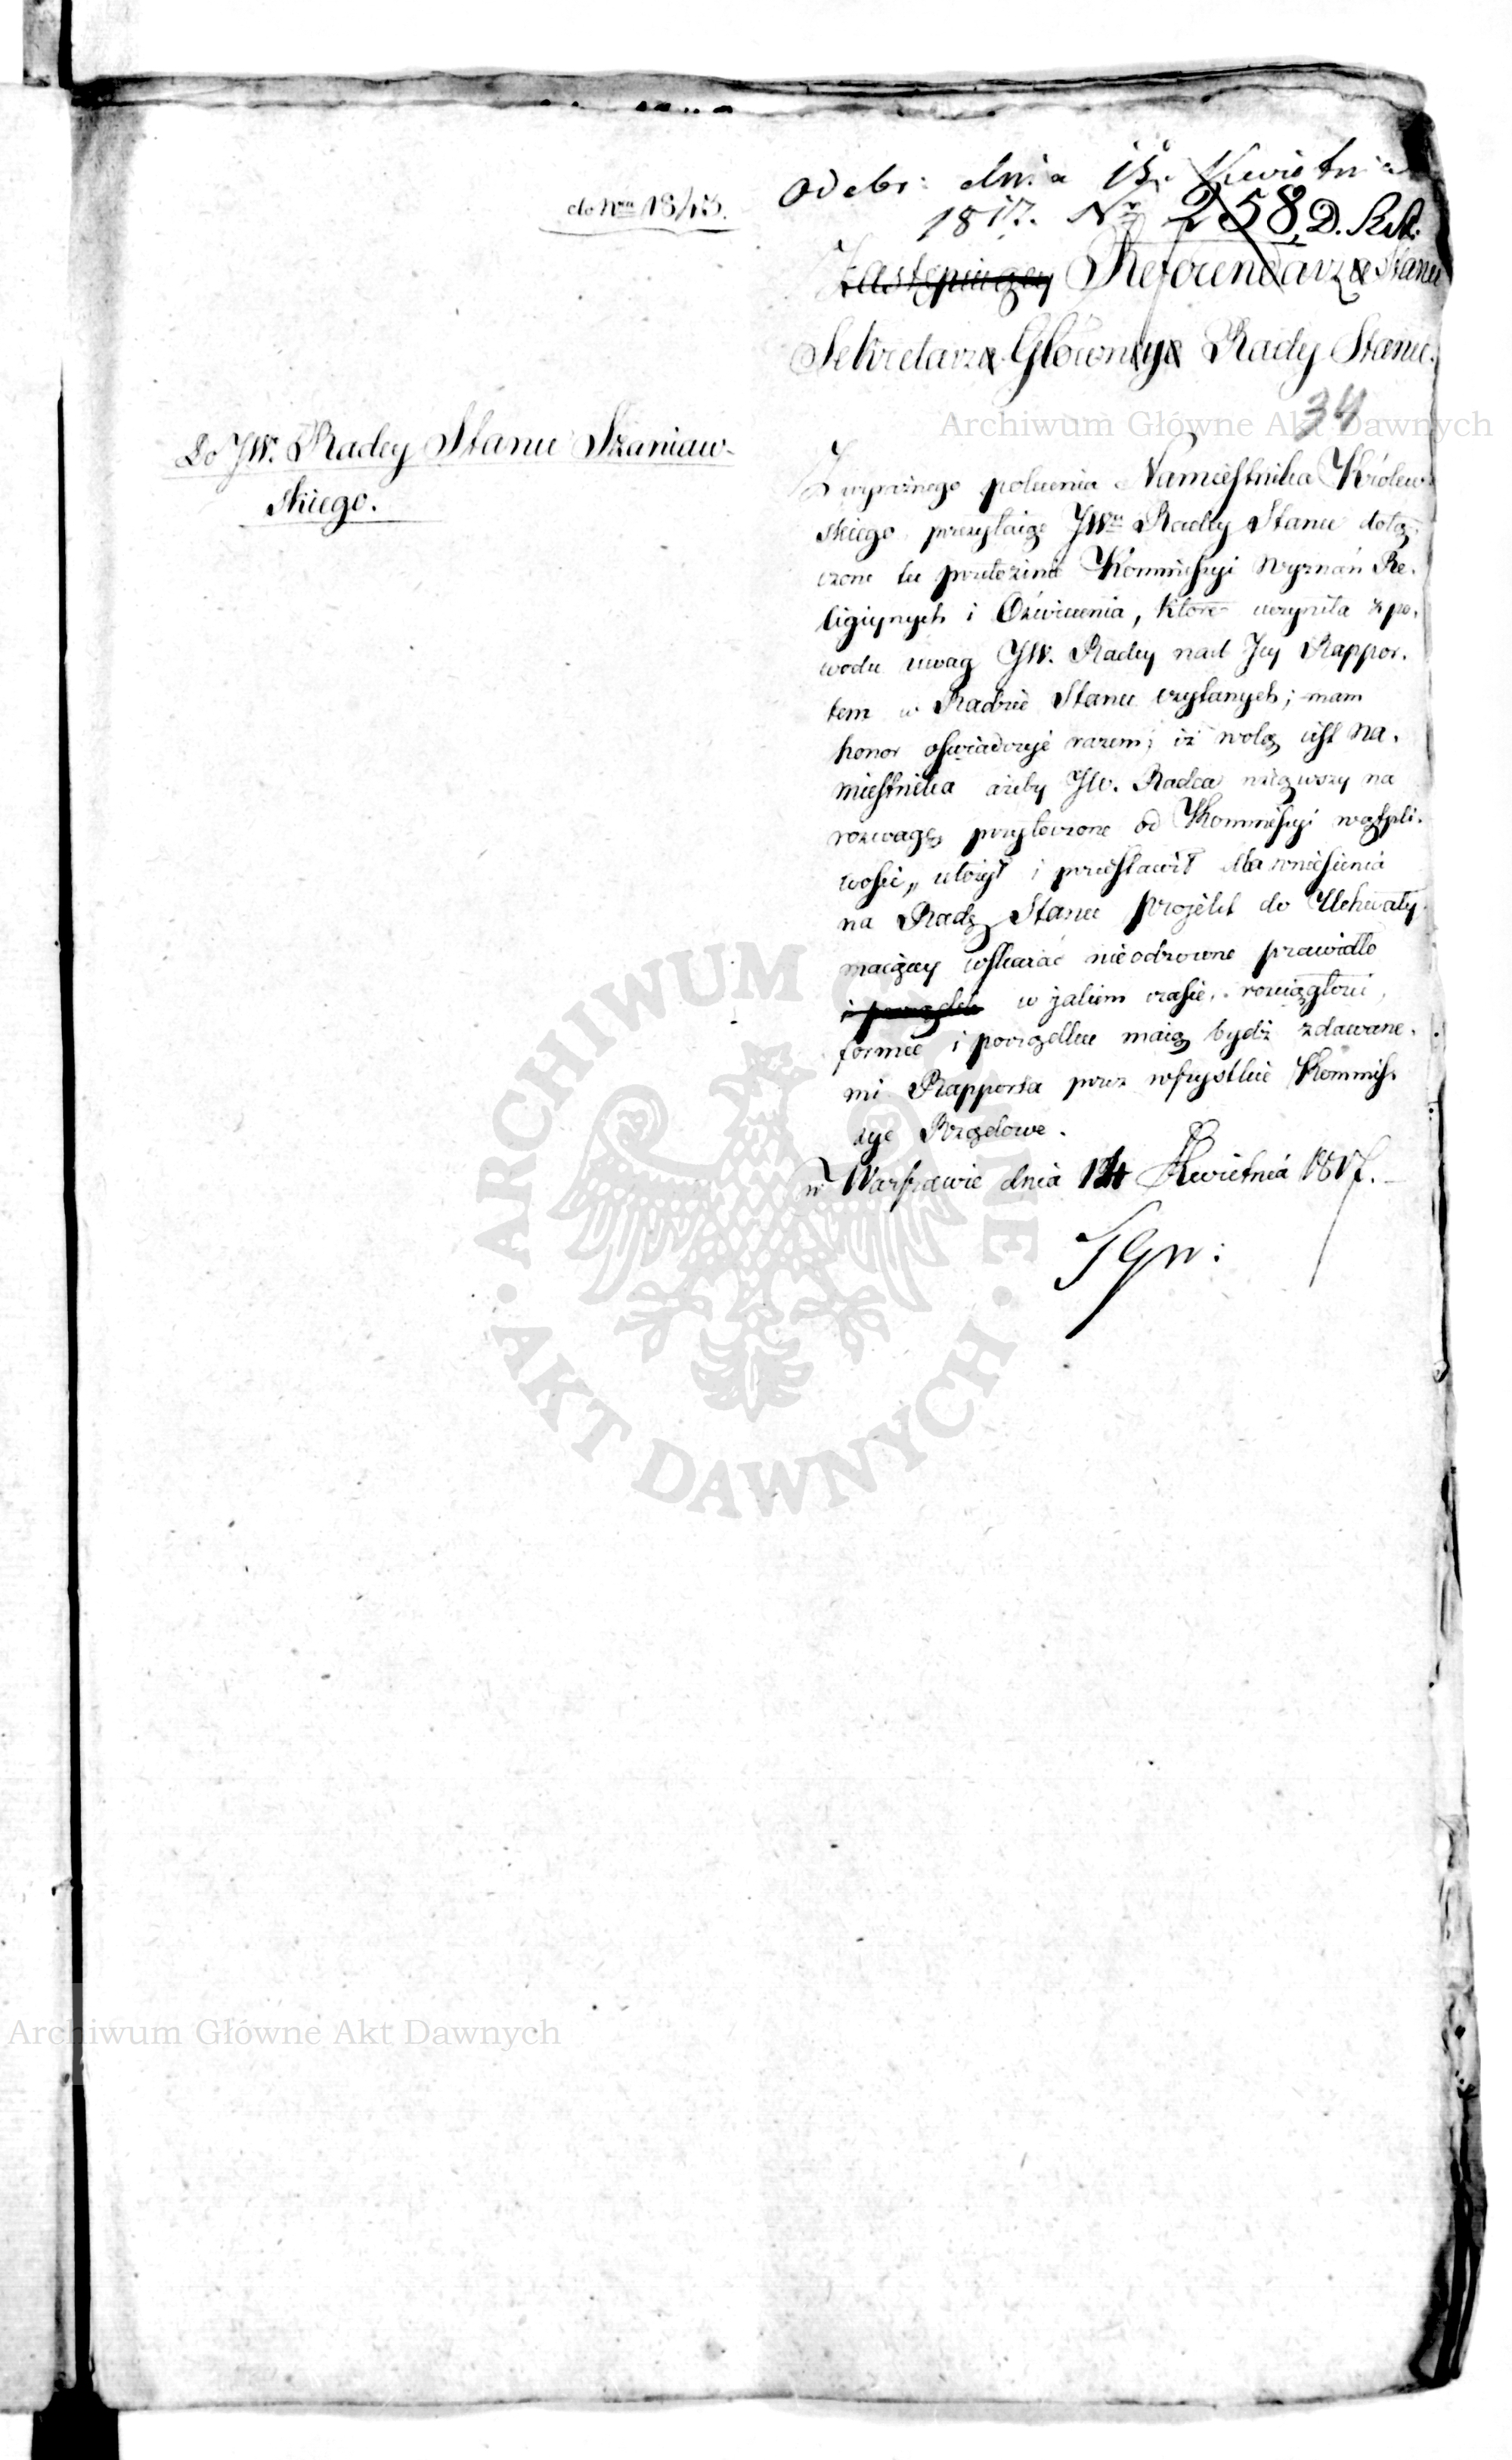 do Nru 18/43.
odebr: dnia 15. Kwietnia
1817. Nr 258, D. R. St.
Zastępuiący Referendarz Stanu
Sekretarz Główny Rady Stanu.
34
Do JW. Radcy Stanu Szaniaw-
skiego.
Z wyraźnego polecenia Namiestnika Królew-
skiego przesyłaiąc JWu Radcy Stanu dołą-
czone tu przełożenie Kommissyi Wyznań Re-
ligiynych i Oświecenia, które uczyniła z po-
wodu uwag JW. Radcy nad Jey Rappor-
tem w Radzie Stanu czytanych; mam
honor oświadczyć razem; iż wolą iest Na-
miestnika ażeby JW. Radca wziąwszy na
rozwagę przytoczone od Kommissyi wątpli-
wości, ułożył i przestawił dla wniesienia
na Radę Stanu projekt do Uchwały
maiący wskazać nieodzowne prawidło
i porządek w jakiem czasie, rozciągłości,
formie i porządku maią bydź zdawane-
mi Rapporta przez wszystkie Kommis-
sye Rządowe.
w Warszawie dnia 14 Kwietnia 1817.
Archiwum Główne Akt Dawnych
ARCHIWUM GŁÓWNE AKT DAWNYCH
Archiwum Główne Akt Dawnych